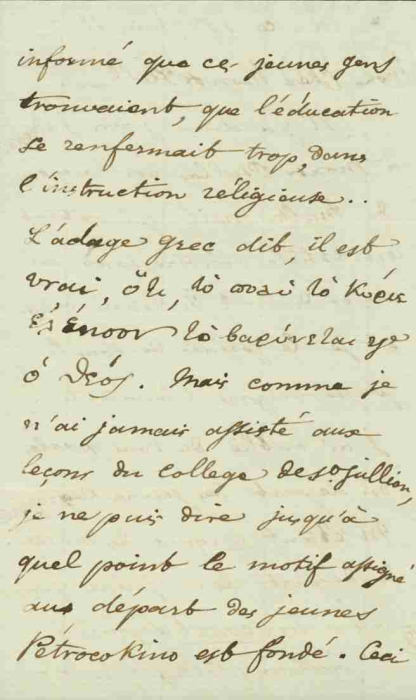 informé que ces jeunes gens
trouvaient, que l'éducation
se renfermait trop, dans
l'instruction réligieuse..
L'adage grec dit, il est
vrai, ὅτι, τὸ πολὺ τὸ Κύριε
ἐλέησον τὸ βαρύνεται κη
ὁ Θεός. Mais comme je
n'ai jamais assisté aux
leçons du college de St. Jullion,
je ne puis dire jusqu'à
quel point le motif assigné
au départ des jeunes
Pétrocokino est fondé. Ceci